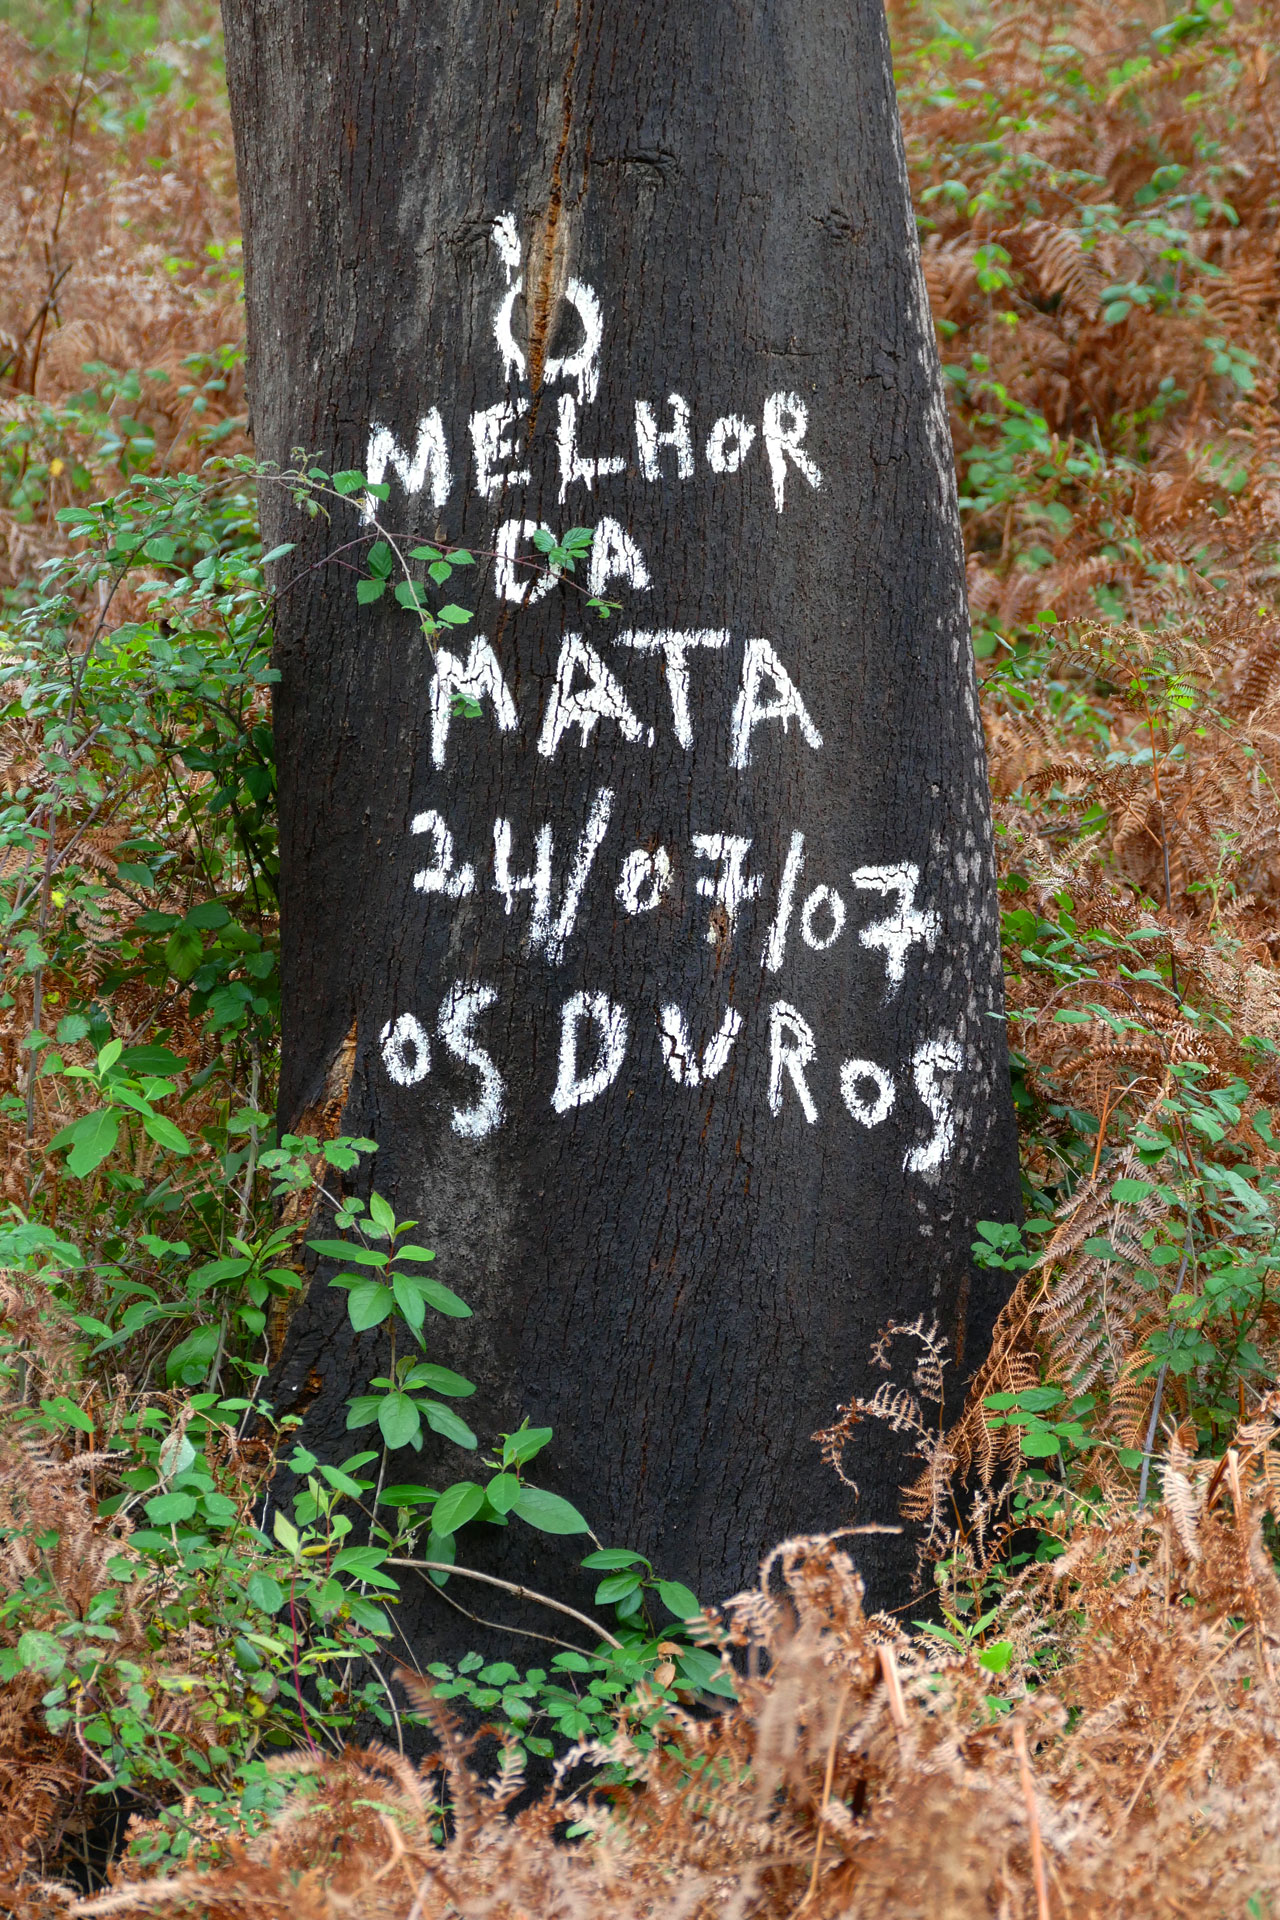 Ò
MELHOR
DA
MATA
24/07/07
OS DUROS